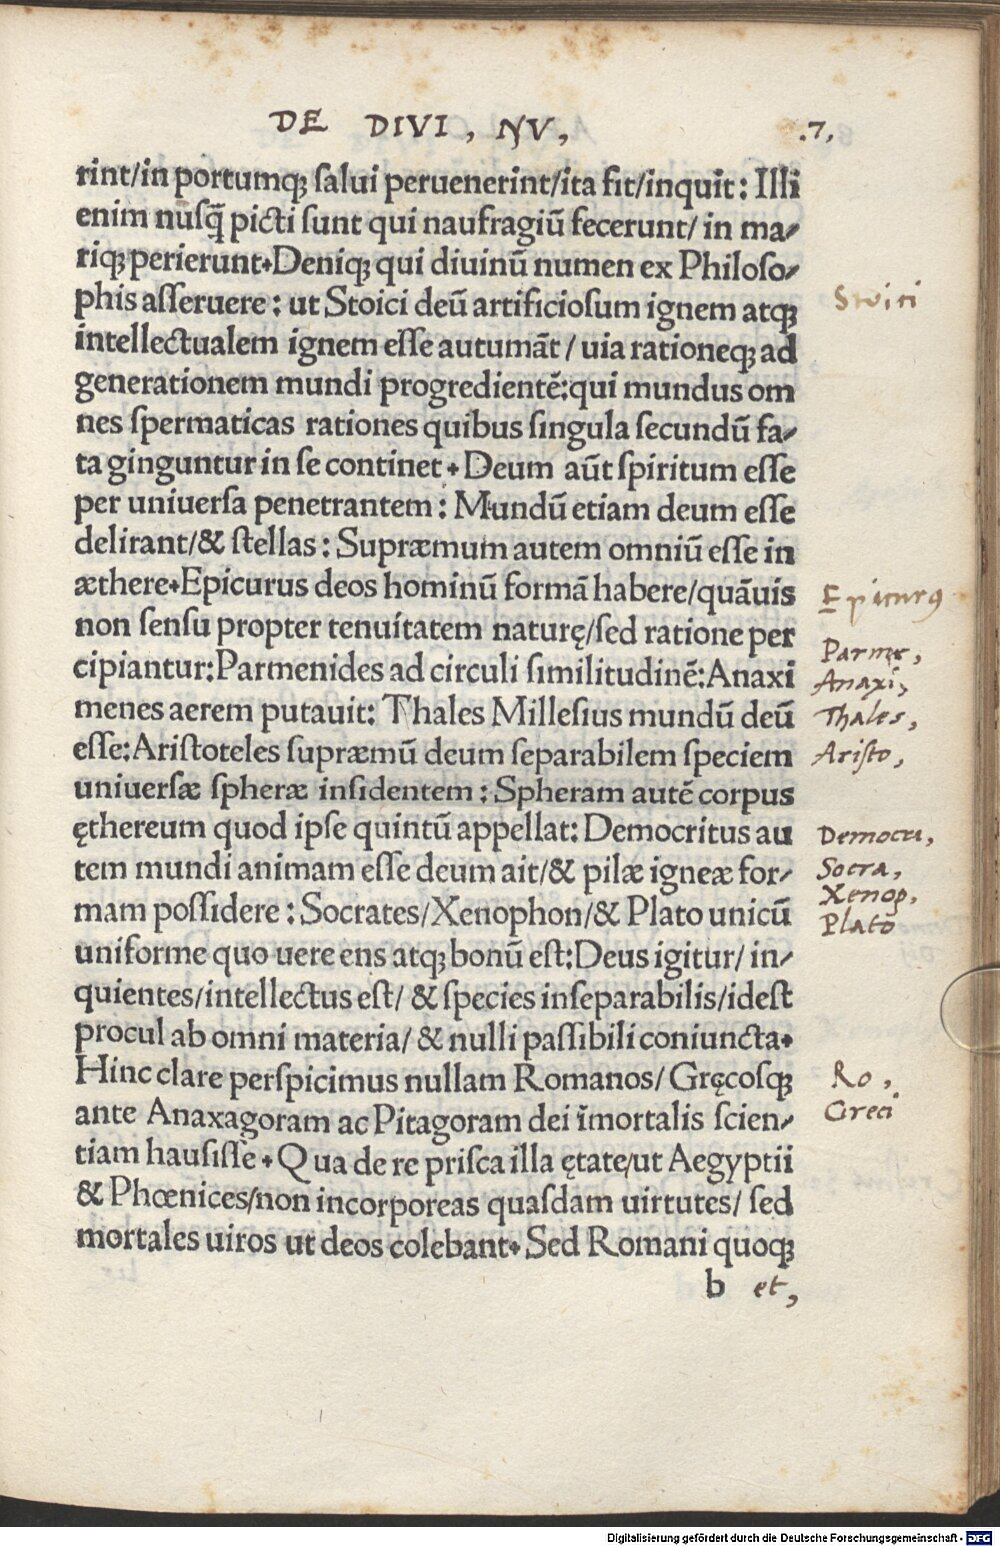 DE DIVI, NV, .7,
rint/in portumq; ſalui peruenerint/ita fit/inquit: Illi
enim nuſq̃ picti ſunt qui naufragiũ fecerunt/ in ma⸗
riq; perierunt.Deniq; qui diuinũ numen ex Philoſo⸗
phis aſſeruere: ut Stoici deũ artificioſum ignem atq;
Stoici
intellectualem ignem eſſe autumãt / uia rationeq; ad
generationem mundi progredientẽ:qui mundus om
nes ſpermaticas rationes quibus ſingula ſecundũ fa⸗
ta ginguntur in ſe continet. Deum aũt ſpiritum eſſe
per uniuerſa penetrantem: Mundũ etiam deum eſſe
delirant/& ſtellas: Supræmum autem omniũ eſſe in
æthere.Epicurus deos hominũ formã habere/quãuis
Epicurꝯ
non ſenſu propter tenuitatem naturę/ſed ratione per
Parme,
cipiantur:Parmenides ad circuli ſimilitudinẽ:Anaxi
Anaxi,
menes aerem putauit: Thales Milleſius mundũ deũ
Thales,
eſſe:Ariſtoteles ſupræmũ deum ſeparabilem ſpeciem
Ariſto,
uniuerſæ ſpheræ inſidentem: Spheram autẽ corpus
ęthereum quod ipſe quintũ appellat: Democritus au
Democri,
tem mundi animam eſſe deum ait/& pilæ igneæ for⸗
Socra,
Xenop,
mam poſſidere: Socrates/Xenophon/& Plato unicũ
Plato
uniforme quo uere ens atq; bonũ eſt:Deus igitur/ in⸗
quientes/intellectus eſt/ & ſpecies inſeparabilis/ideſt
procul ab omni materia/ & nulli paſſibili coniuncta.
Hinc clare perſpicimus nullam Romanos/ Gręcoſq;
Ro,
ante Anaxagoram ac Pitagoram dei ĩmortalis ſcien⸗
Greci
tiam hauſiſſe. Qua de re priſca illa ętate/ut Aegyptii
& Phœnices/non incorporeas quaſdam uirtutes/ ſed
mortales uiros ut deos colebant. Sed Romani quoq;
b et,
Digitalisierung gefördert durch die Deutsche Forschungsgemeinschaft - DFG